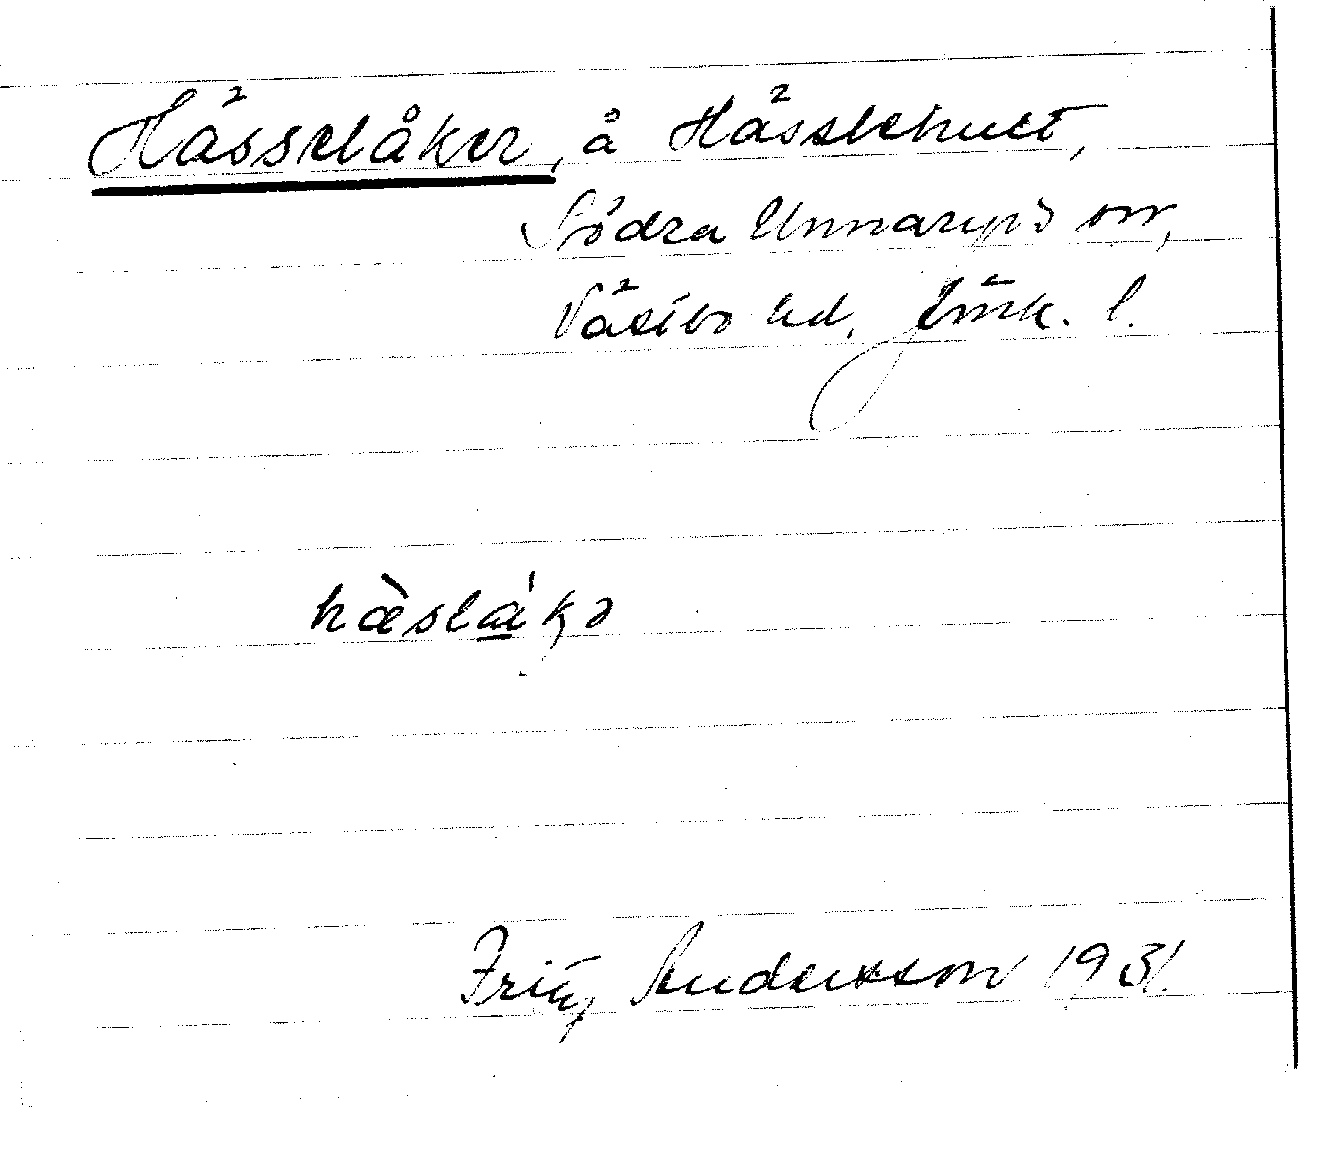 Hässelåker, å Hässlehult,
Södra Unnaryds sn,
Västbo hd, Jönk. l.
hæ̀slåkə
Fritz Andersson 1931.